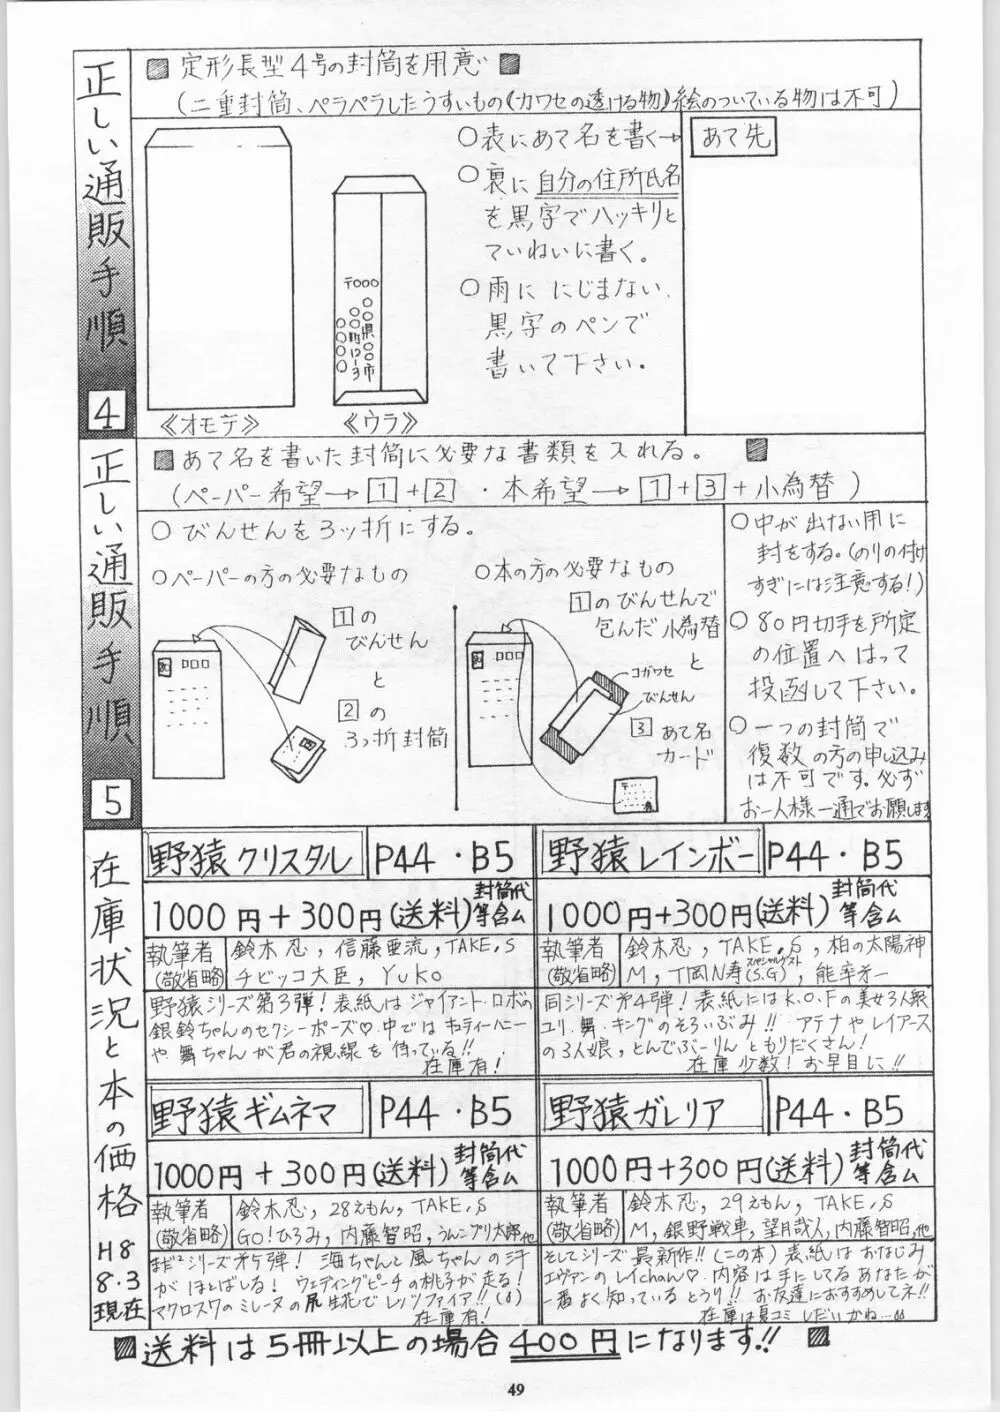 正しい通販手順
4
■ 定形長型4号の封筒を用意 ■
(二重封筒、ペラペラしたうすいもの《カワセの透ける物》絵のついている物は不可)
○表にあて名を書く→
あて先
○裏に自分の住所氏名
を黒字でハッキリと
ていねいに書く。
○雨ににじまない、
黒字のペンで
書いて下さい。
〒○○○
○○県○○市
○○○○町0-3
《オモテ》
《ウラ》
正しい通販手順
5
■ あて名を書いた封筒に必要な書類を入れる。 ■
(ペーパー希望→1+2・本希望→1+3+小為替)
○びんせんを3ッ折にする。
○ペーパーの方の必要なもの
1の
びんせん
と
2の
3っ折封筒
○本の方の必要なもの
1のびんせんで
包んだ小為替
と
コガワセ
びんせん
3あて名
カード
○中が出ない用に
封をする。(のりの付け
すぎには注意する!)
○80円切手を所定
の位置へはって
投函して下さい。
○一つの封筒で
復数の方の申し込み
は不可です。必ず
お一人様一通でお願します
在庫状況と本の価格
H8
8.3
現在
野猿クリスタル
P44・B5
1000円+300円(送料)封筒代等含ム
執筆者
(敬省略)
鈴木忍, 信藤亜流, TAKE,S
チビッコ大臣, YUKO
野猿シリーズ第3弾!表紙はジャイアント・ロボの
銀鈴ちゃんのセクシーポーズ♡中ではキューティーハニー
や舞ちゃんが君の視線を待っている!!
在庫有!
野猿レインボー
P44・B5
1000円+300円(送料)封筒代等含ム
執筆者
(敬省略)
鈴木忍, TAKE,S, 柏の太陽神
M, T岡N寿(S.G)スペシャルゲスト, 能率才一
同シリーズ第4弾!表紙にはK.O.Fの美女3人組
ユリ、舞、キングのそろいぶみ!! アテナやレイアース
の3人娘, とんでぶーりんともりだくさん!
在庫少数!お早目に!!
野猿ギムネマ
P44・B5
1000円+300円(送料)封筒代等含ム
執筆者
(敬省略)
鈴木忍, 28えもん, TAKE,S
GO!ひろみ, 内藤智昭, うんこプリ太郎, 他
まだシリーズ第5弾! 海ちゃんと風ちゃんの汗
がほとばしる! ウェディングピーチの桃子が走る!
マクロス7のミレーヌの尻生花でレッツファイア!!
在庫有!
野猿ガレリア
P44・B5
1000円+300円(送料)封筒代等含ム
執筆者
(敬省略)
鈴木忍, 29えもん, TAKE,S
M, 銀野戦車, 望月哉人, 内藤智昭, 他
そしてシリーズ最新作!!(この本)表紙はおなじみ
エヴァンのレイchan♡内容は手にしてるあなたが
一番よく知っているとうり!! お友達におすすめしてネ!!
在庫は夏コミしだいかね…
■送料は5冊以上の場合400円になります!! ■
49